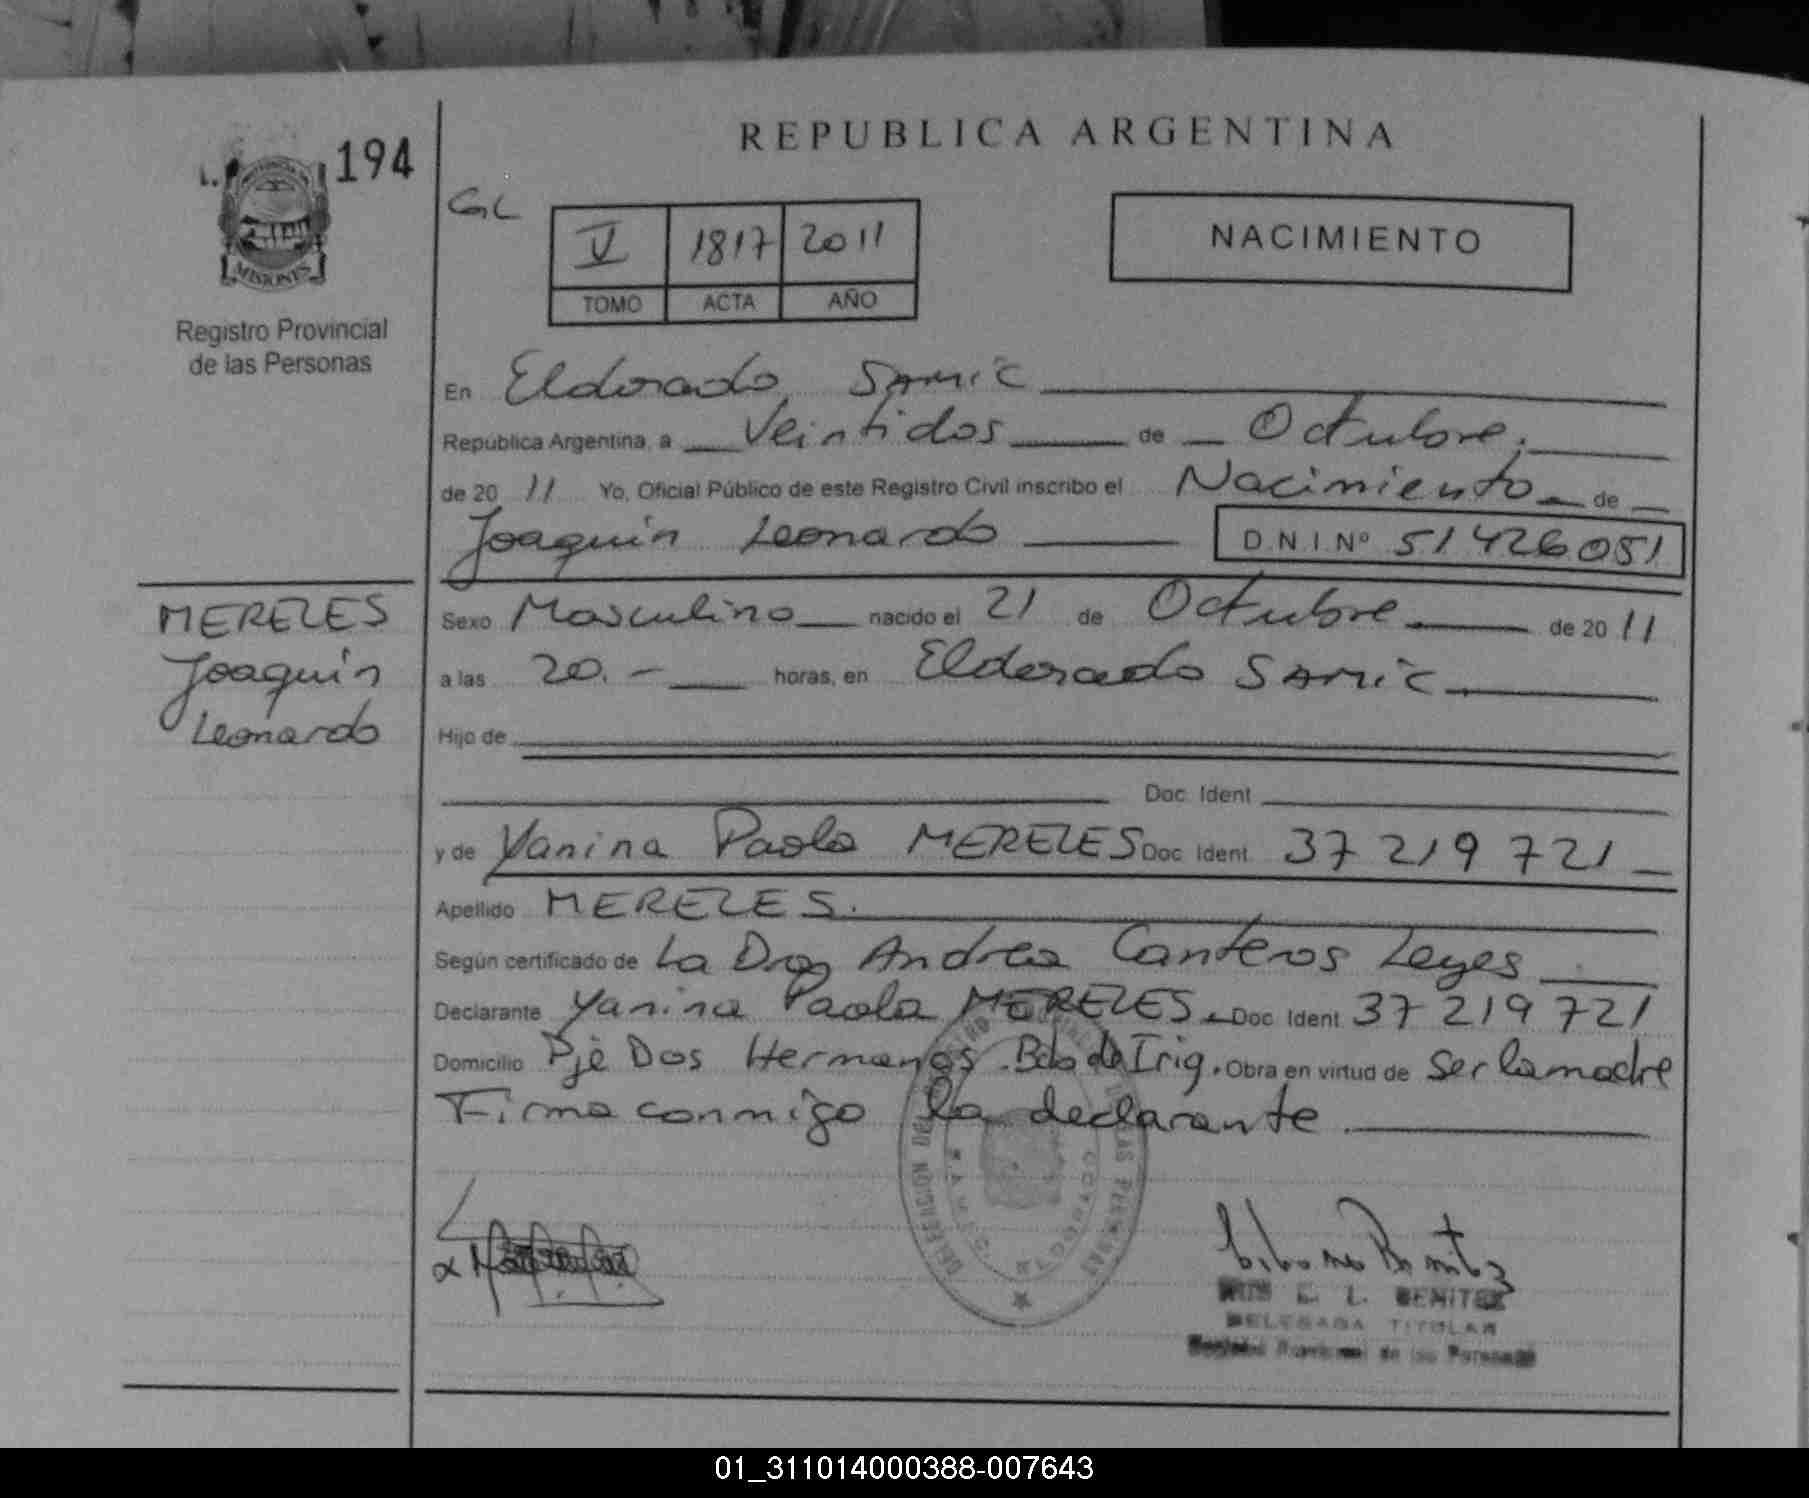 194
MISIONES
Registro Provincial
de las Personas
REPUBLICA ARGENTINA
GL
V 1817 2011
TOMO ACTA AÑO
NACIMIENTO
En Eldorado Samic
República Argentina, a Veintidos de Octubre
de 20 11 Yo, Oficial Público de este Registro Civil inscribo el Nacimiento de
Joaquin Leonardo D.N.I.Nº 51426051
MERELES
Joaquin
Leonardo
Sexo Masculino nacido el 21 de Octubre de 20 11
a las 20.- horas, en Eldorado Samic
Hijo de
Doc. Ident
y de Yanina Paola MERELES Doc. Ident. 37 219 721
Apellido MERELES.
Según certificado de La Dra Andrea Canteros Leyes
Declarante Yanina Paola MERELES. Doc. Ident 37 219 721
Domicilio Pje Dos Hermanos. Bdo de Irig. Obra en virtud de ser la madre
Firma conmigo la declarante
E. L. BENITEZ
DELEGADA TITULAR
Provincial de las Personas
01_311014000388-007643